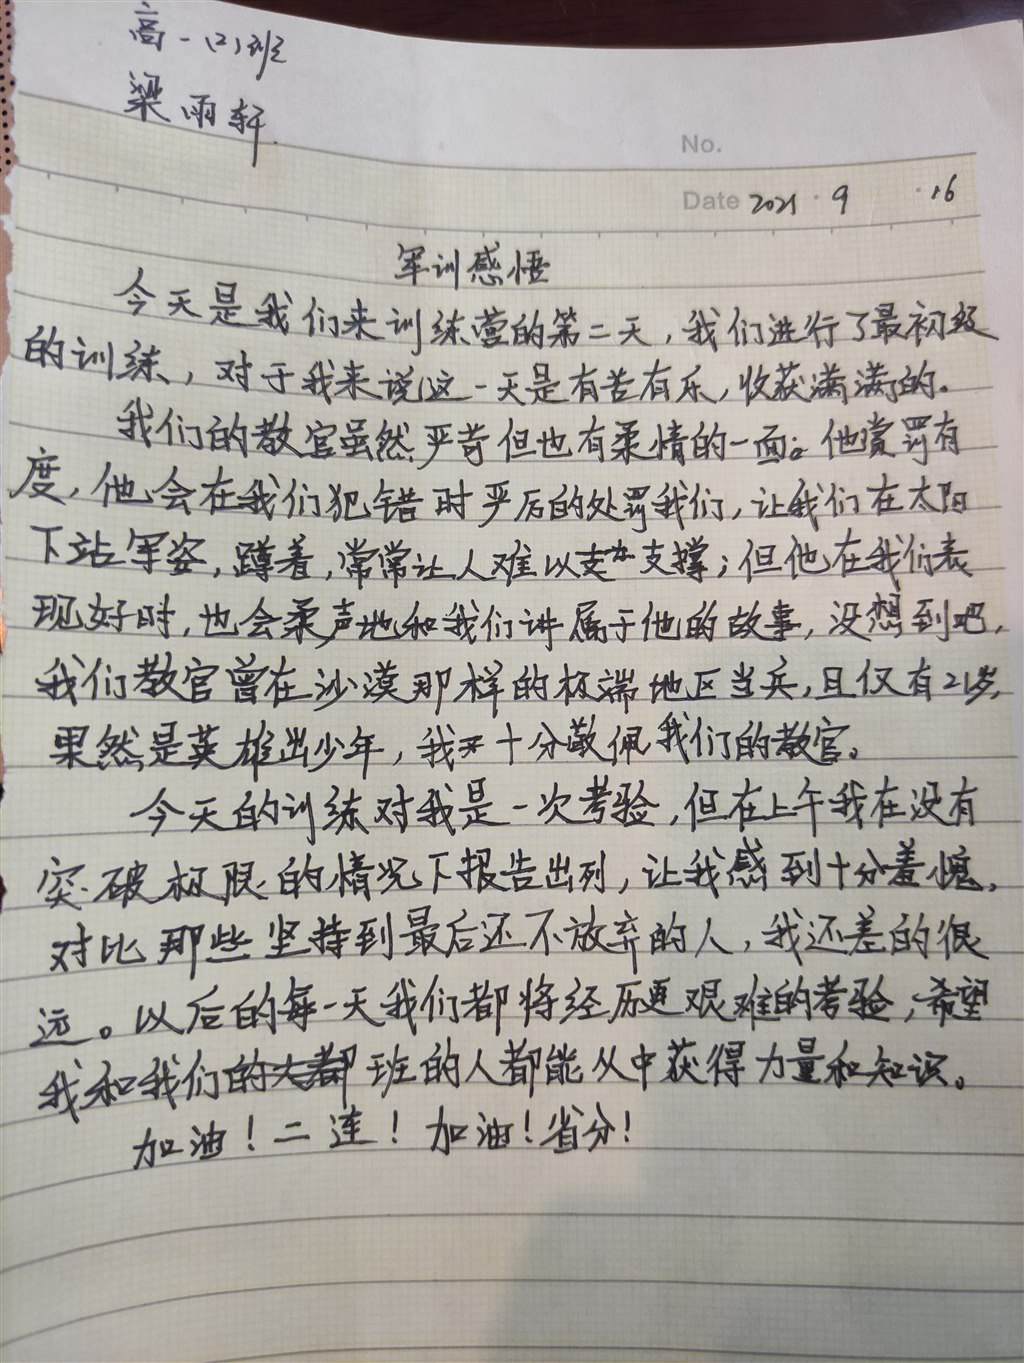 高一(2)班
梁雨轩
No.
Date 2021·9·16
军训感悟
今天是我们来训练营的第二天，我们进行了最初级
的训练，对于我来说这一天是有苦有乐，收获满满的。
我们的教官虽然严苛但也有柔情的一面。他赏罚有
度，他会在我们犯错时严厉的处罚我们，让我们在太阳
下站军姿，蹲着，常常让人难以支撑；但他在我们表
现好时，也会柔声地和我们讲属于他的故事，没想到吧，
我们教官曾在沙漠那样的极端地区当兵，且仅有21岁，
果然是英雄出少年，我十分敬佩我们的教官。
今天的训练对我是一次考验，但在上午我在没有
突破极限的情况下报告出列，让我感到十分羞愧，
对比那些坚持到最后还不放弃的人，我还差的很
远。以后的每一天我们都将经历更艰难的考验，希望
我和我们班的人都能从中获得力量和知识。
加油！二连！加油！省分！